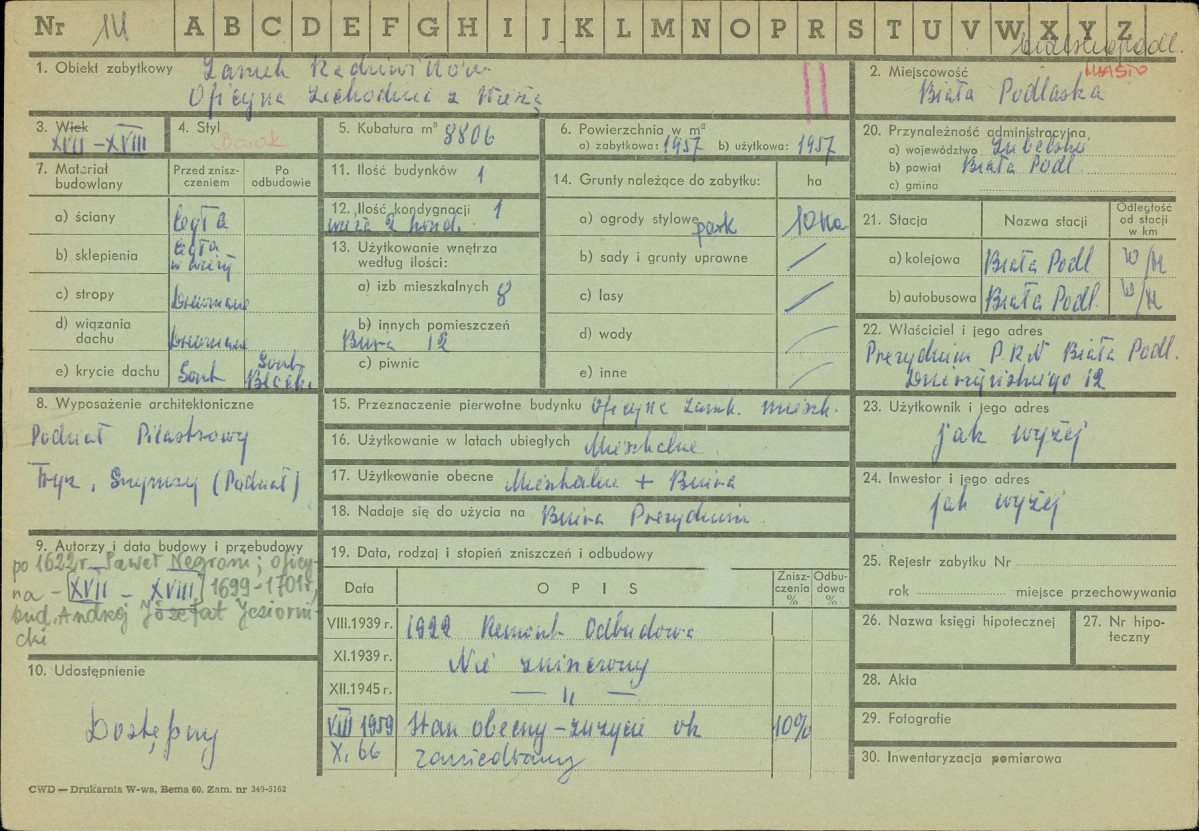 Nr 14 A B C D E F G H I J K L M N O P R S T U V W X Y Z
bialskopodl.
1. Obiekt zabytkowy Zamek Radziwiłłów
Oficyna Zachodnia z Wieżą
2. Miejscowość MIASTO
Biała Podlaska
3. Wiek
XVII – XVIII
4. Styl
Barok
5. Kubatura m³ 8806
6. Powierzchnia w m²
a) zabytkowa: 1957 b) użytkowa: 1957
20. Przynależność administracyjna
a) województwo Lubelskie
b) powiat Biała Podl.
c) gmina
7. Materiał budowlany
Przed znisz-
czeniem
Po
odbudowie
a) ściany cegła
b) sklepienia cegła
w wieży
c) stropy Drewniane
d) wiązania
dachu Drewniane
e) krycie dachu Gont Gont
Blach.
11. Ilość budynków 1
12. Ilość kondygnacji 1
wieża 2 kond.
13. Użytkowanie wnętrza
według ilości:
a) izb mieszkalnych 8
b) innych pomieszczeń
Biura 12
c) piwnic
14. Grunty należące do zabytku: ha
a) ogrody stylowe park 10 ha
b) sady i grunty uprawne /
c) lasy /
d) wody /
e) inne /
21. Stacja Nazwa stacji Odległość
od stacji
w km
a) kolejowa Biała Podl w/m
b) autobusowa Biała Podl. w/m
22. Właściciel i jego adres
Prezydium P.R.N Biała Podl.
Dzierżyńskiego 12
8. Wyposażenie architektoniczne
Portal Pilastrowy
Fryz, Szczyt (Portal)
15. Przeznaczenie pierwotne budynku Oficyna zamk. mieszk.
16. Użytkowanie w latach ubiegłych Mieszkalne
17. Użytkowanie obecne Mieszkalne + Biura
18. Nadaje się do użycia na Biura Prezydium
23. Użytkownik i jego adres
jak wyżej
24. Inwestor i jego adres
jak wyżej
9. Autorzy i data budowy i przebudowy
po 1622r. Paweł Negroni; oficy-
na – XVII – XVIII 1699-1701r,
bud. Andrzej Józefat Jeziorni-
cki
10. Udostępnienie
Dostępny
19. Data, rodzaj i stopień zniszczeń i odbudowy
Data OPIS Znisz-
czenia
% Odbu-
dowa
%
VIII.1939 r. 1922 Remont Odbudowa
XI.1939 r. Nie zniszczony
XII.1945 r. — " —
VIII 1959 Stan obecny – zużycie ok 10%
X. 66 zaniedbany
25. Rejestr zabytku Nr
rok miejsce przechowywania
26. Nazwa księgi hipotecznej
27. Nr hipo-
teczny
28. Akta
29. Fotografie
30. Inwentaryzacja pomiarowa
CWD — Drukarnia W-wa, Bema 60. Zam. nr 349-5162